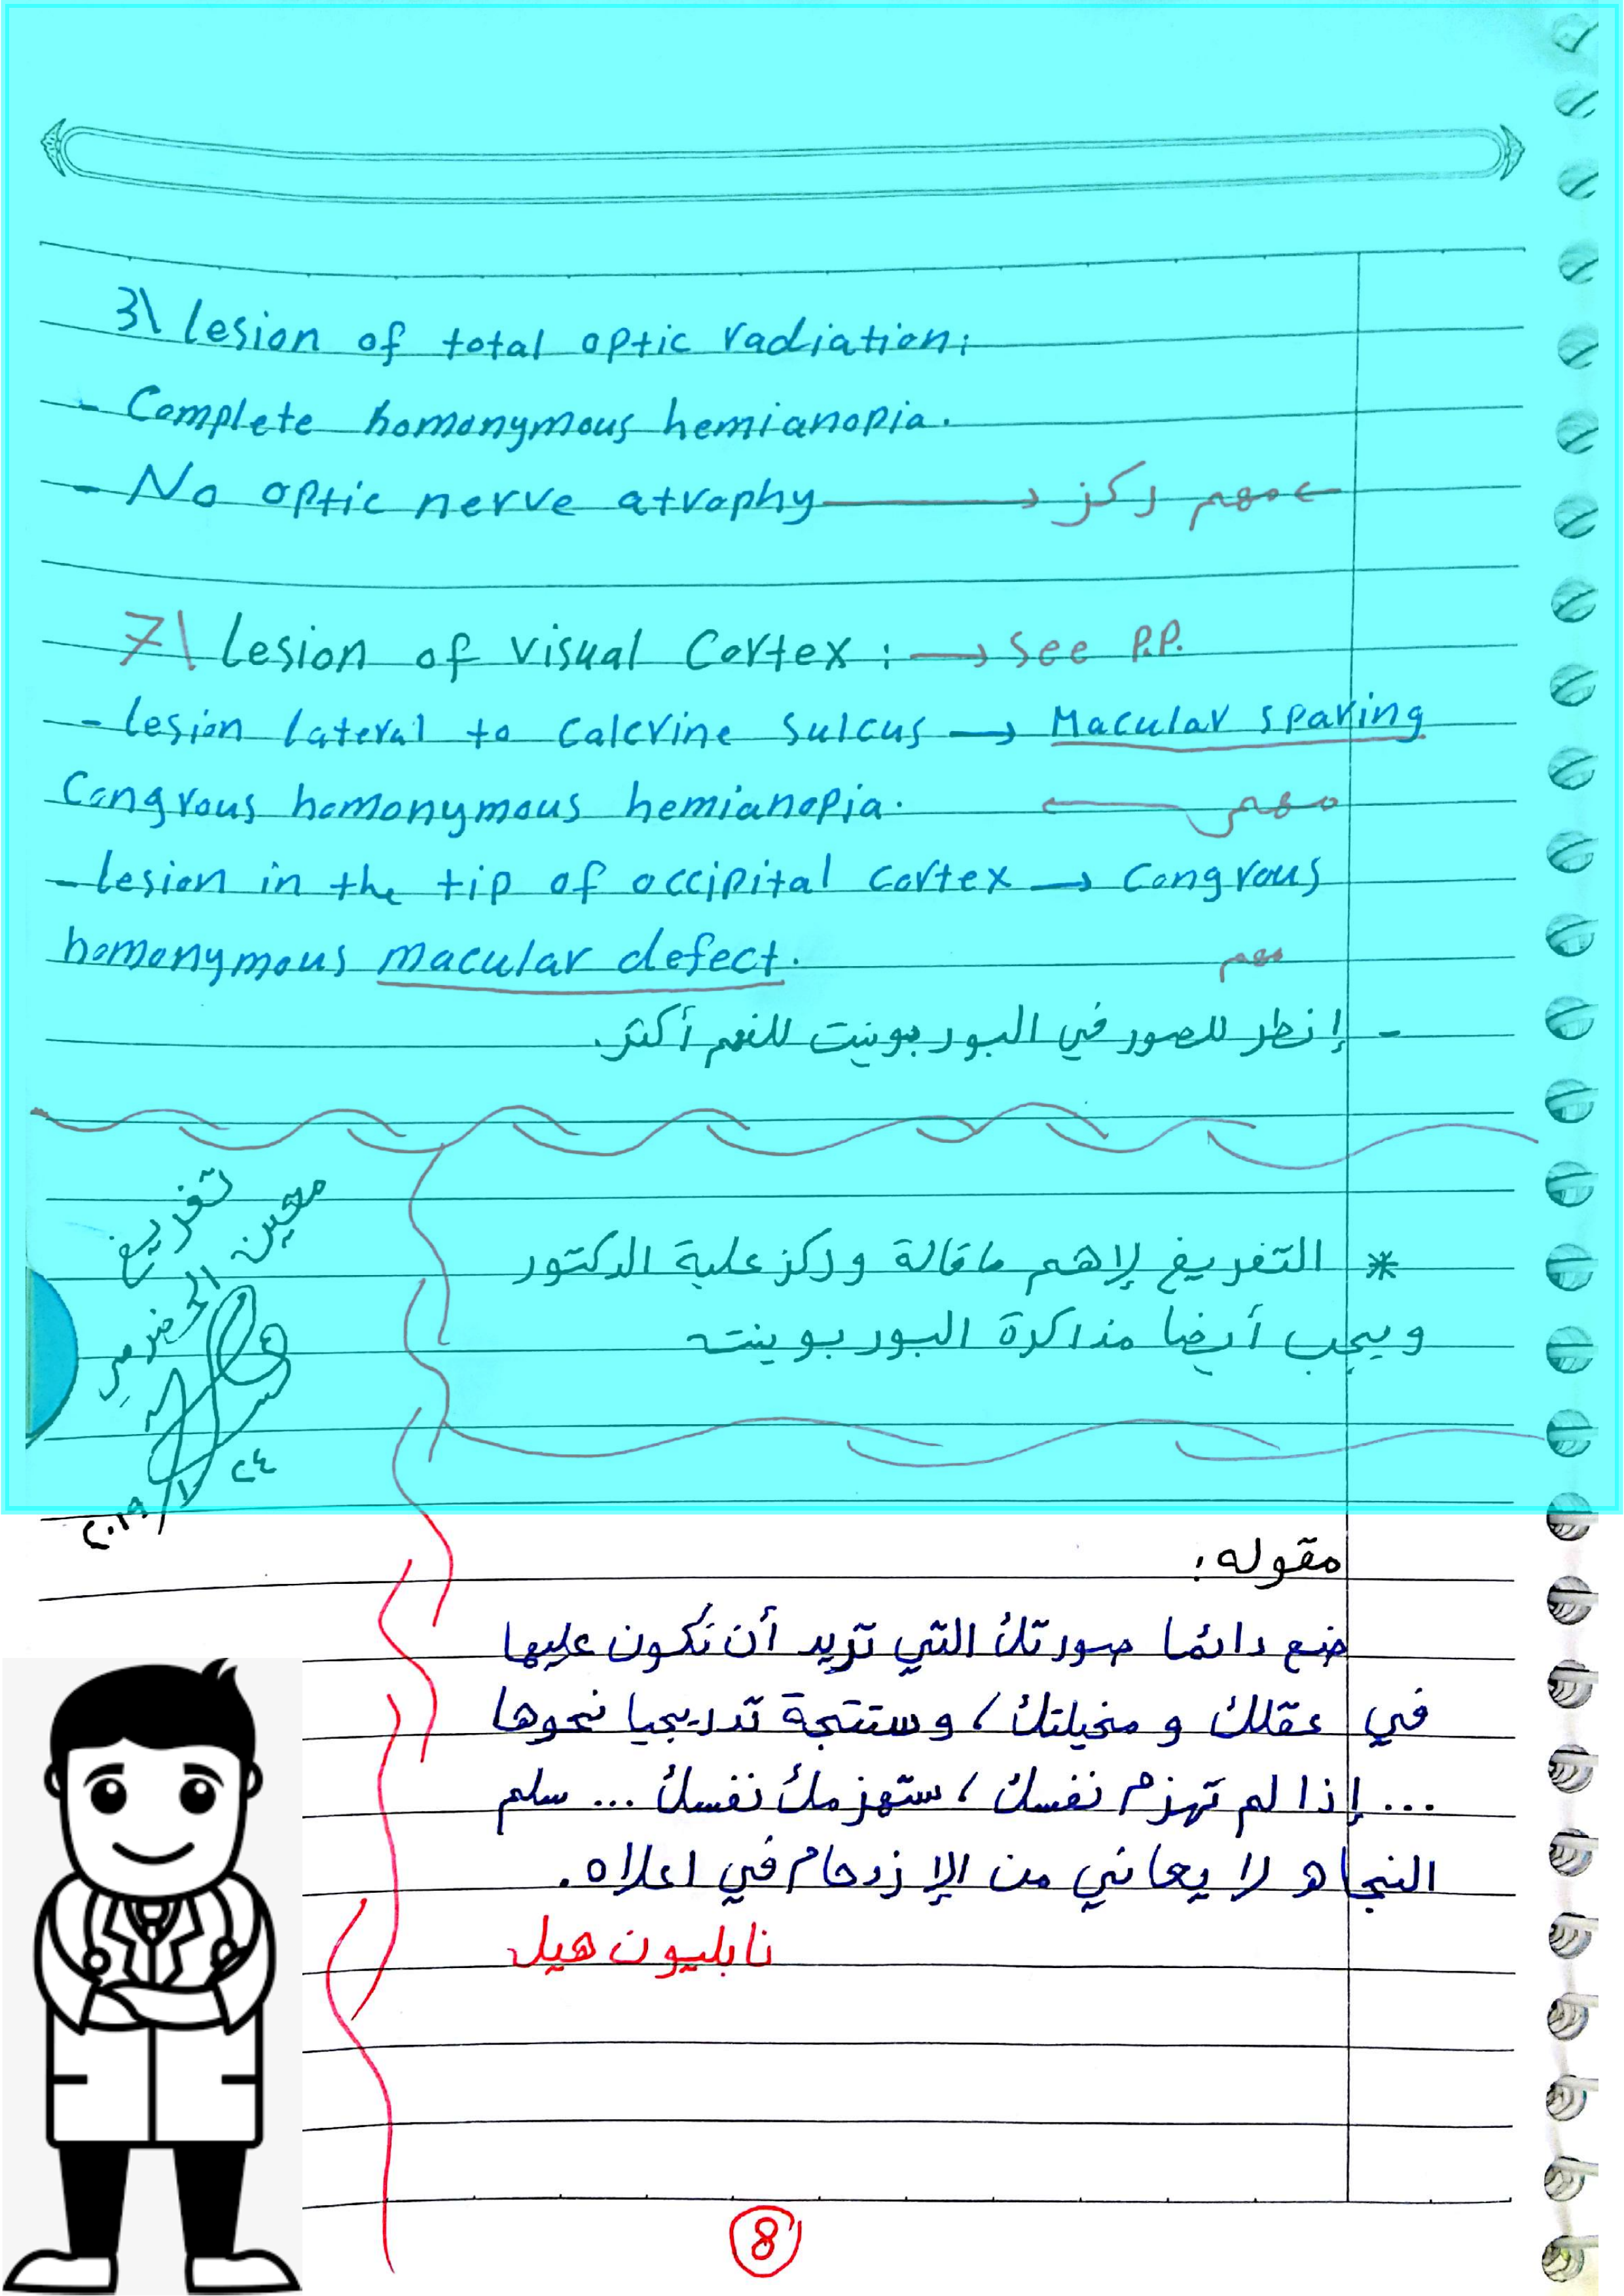 3\ Lesion of total optic radiation:
- Complete homonymous hemianopia.
- No optic nerve atrophy → ركز مهم ←
7\ Lesion of visual Cortex : → See P.P.
- lesion lateral to Calcrine Sulcus → Macular sparing
Congrous homonymous hemianopia. ← مهم
- lesion in the tip of occipital cortex → Congrous
homonymous macular defect. مهم
- إنظر للصور في البور بونيت للفهم أكثر.
تفريغ
معين الحضرمي
٢٤
٢٠١٩/١٠
* التفريغ لاهم ماقالة وركز علية الدكتور
ويجب أيضا مذاكرة البور بوينت
مقوله:
ضع دائما صورتك التي تريد أن تكون عليها
في عقلك و مخيلتك، وستتجة تدريجيا نحوها
... إذا لم تهزم نفسك، ستهزمك نفسك ... سلم
النجاه لا يعاني من الإزدحام في اعلاه.
نابليون هيل
8